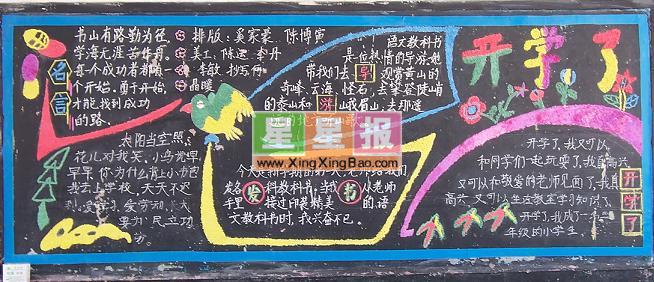 书山有路勤为径
学海无涯苦作舟
每个成功者都有一
个开始。勇于开始,
才能找到成功
的路。
名言
排版:奚家豪 陈博寅
美工:陈远 李丹
李敏 抄写:
晶暖
语文教科书
是位热情的导游,她
带我们去 观赏黄山的
奇峰、云海、怪石,去攀登陡峭
的泰山和 峨眉山,去
开学了
星星报
www.XingXingBao.com
太阳当空照,
花儿对我笑,小鸟说早早
早,你为什么背上小书包
我去上学校,天天不迟
到,爱学习,爱劳动,长大
要为人民立功
今天是新学期的第一天,老师给我们
发 教科书,当我 从老师
手里 接过印装精美 的语
文教科书时,我兴奋不已。
发
书
开学了,我又可以
和同学们一起玩耍了,我真高兴
又可以和敬爱的老师见面了,我真
高兴,又可以坐在教室学习知识了。
开学了,我成了一名
年级的小学生。
开学了